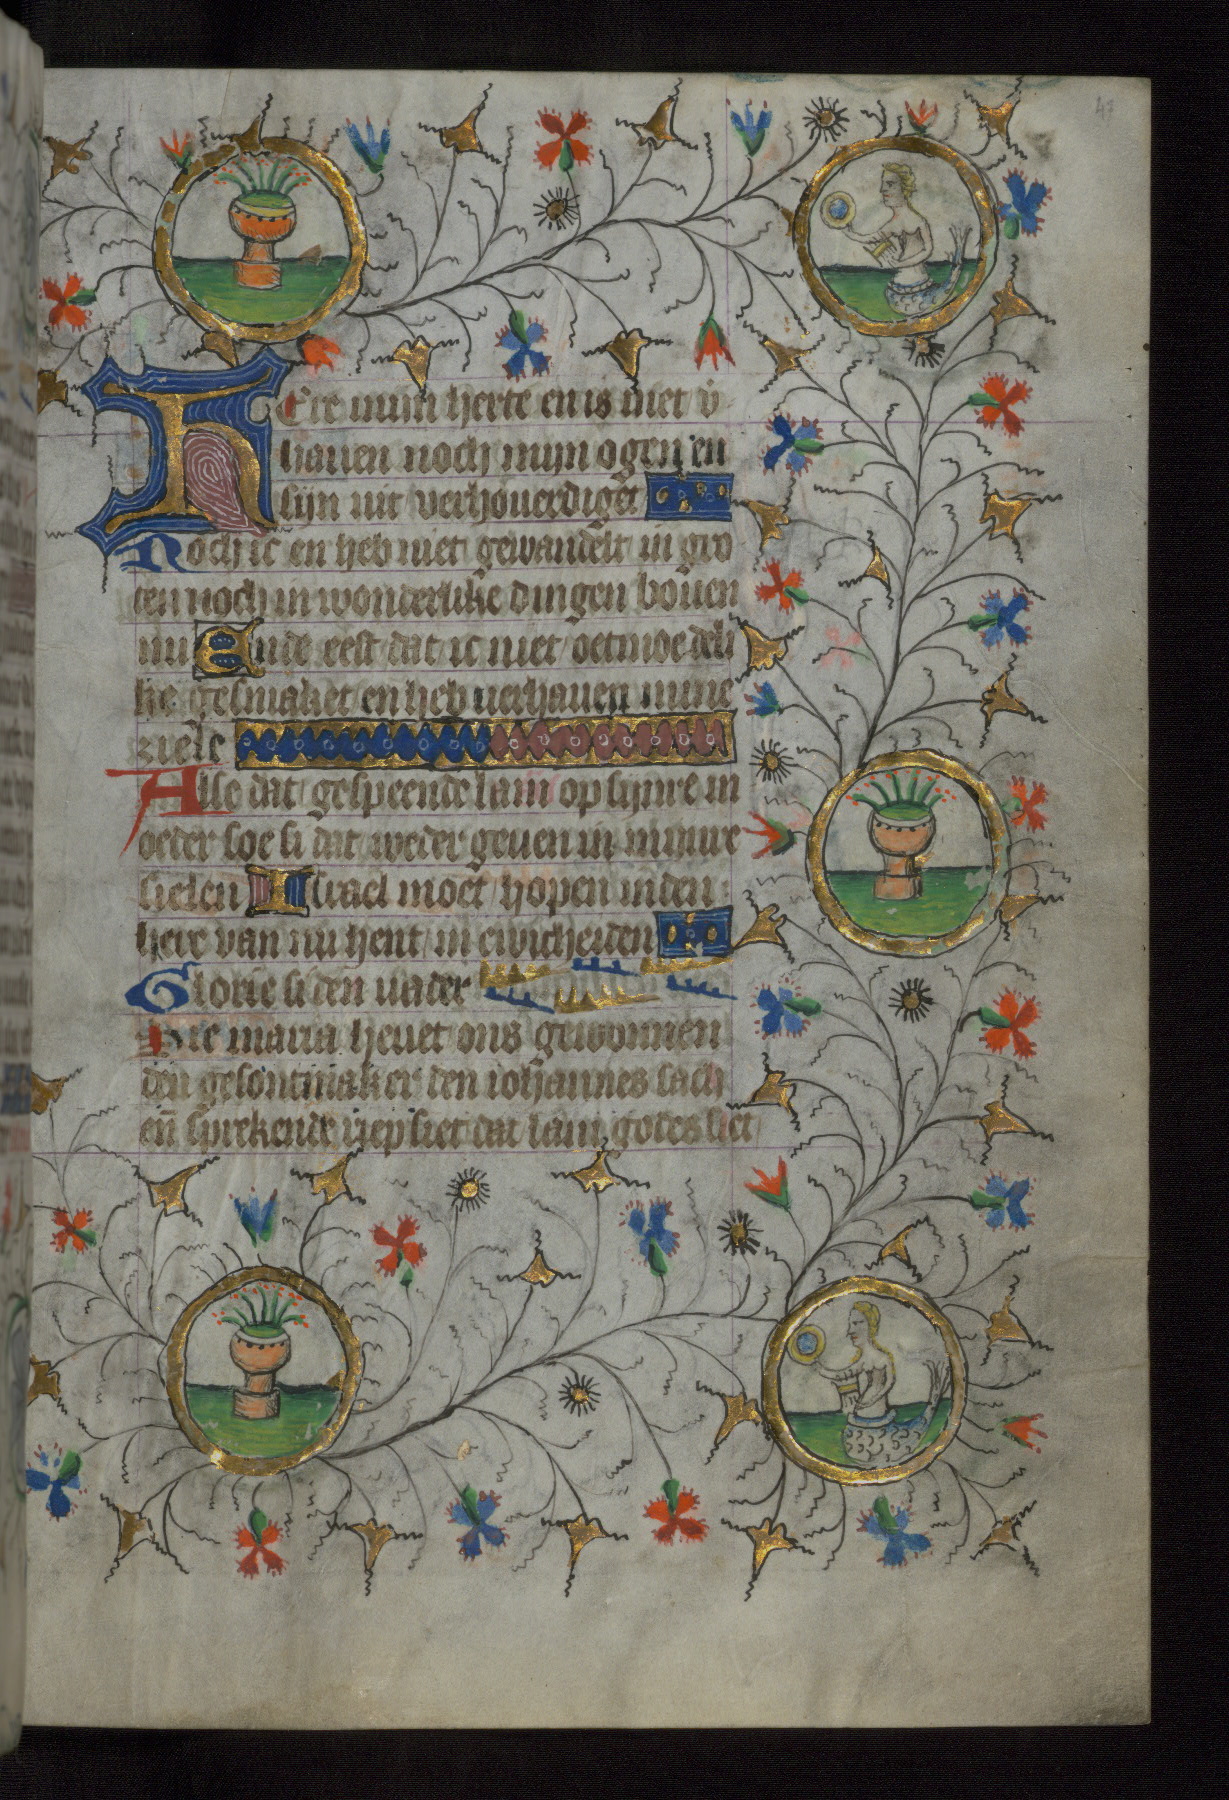 HEre mijn herte en is niet v̄
hauen noch mijn ogen en
sijn nit verhouerdiget
Noch ic en heb niet gewandelt in gro
ten noch in wonderlike dingen bouen
mi Ende eest dat ic niet oetmoedeli
ke gesmaket en heb verhauen mine
ziele
Alse dat gespeende lam op sijnre m
oeder soe si dat weder geuen in minre
sielen Israel moet hopen inden
here van nu hent in ewicheiden
Glorie si den uader
Sie maria heuet ons gewonnen
den gesontmaker den iohannes sach
en̄ sprekende riep siet dat lam godes siet